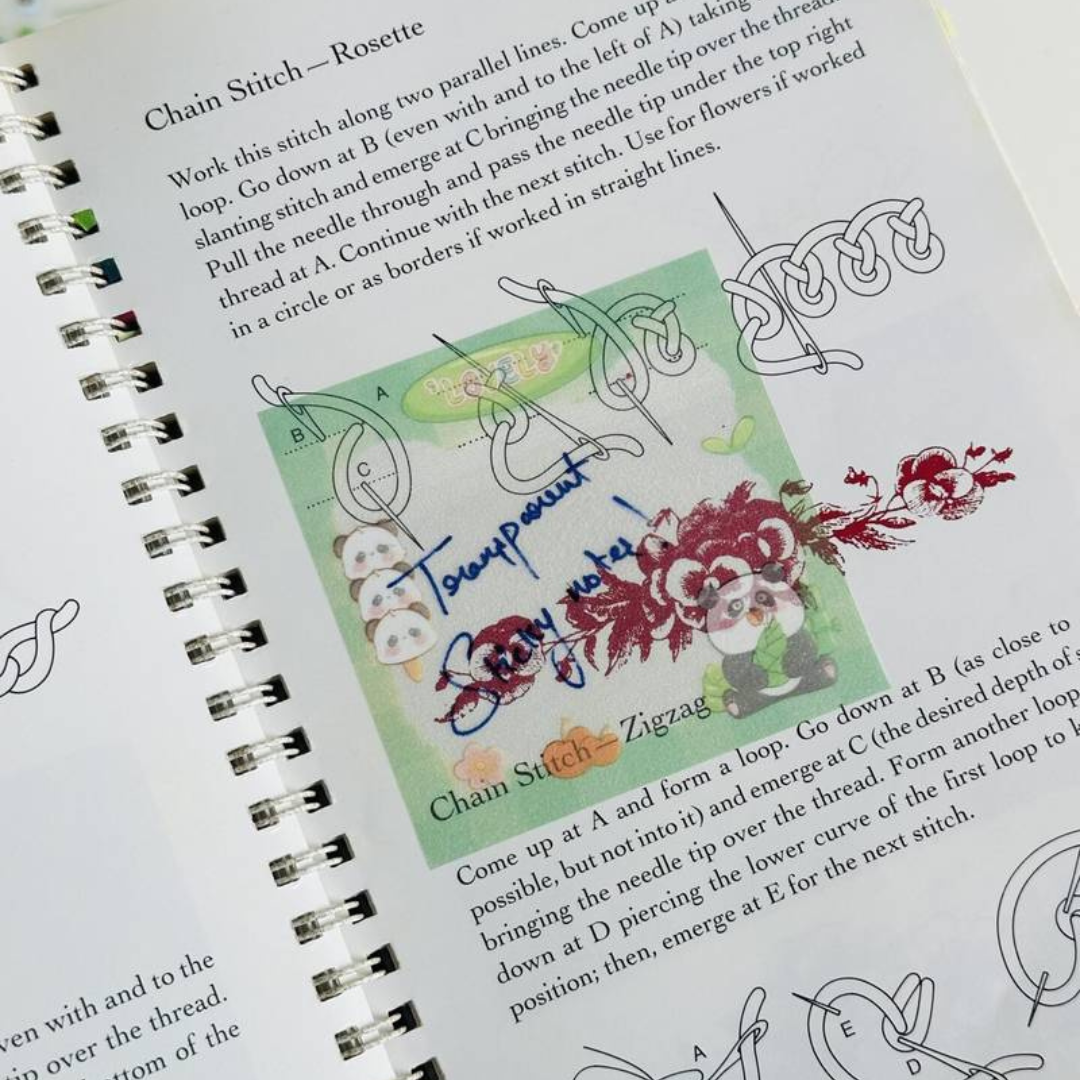 Chain Stitch—Rosette
Work this stitch along two parallel lines. Come up a
loop. Go down at B (even with and to the left of A) taking
slanting stitch and emerge at C bringing the needle tip over the thread.
Pull the needle through and pass the needle tip under the top right
thread at A. Continue with the next stitch. Use for flowers if worked
in a circle or as borders if worked in straight lines.
A
B
C
LOVELY
Transparent
Sticky notes!
Chain Stitch—Zigzag
Come up at A and form a loop. Go down at B (as close to
possible, but not into it) and emerge at C (the desired depth of s
bringing the needle tip over the thread. Form another loop
down at D piercing the lower curve of the first loop to k
position; then, emerge at E for the next stitch.
A
E
D
ven with and to the
tip over the thread.
ottom of the